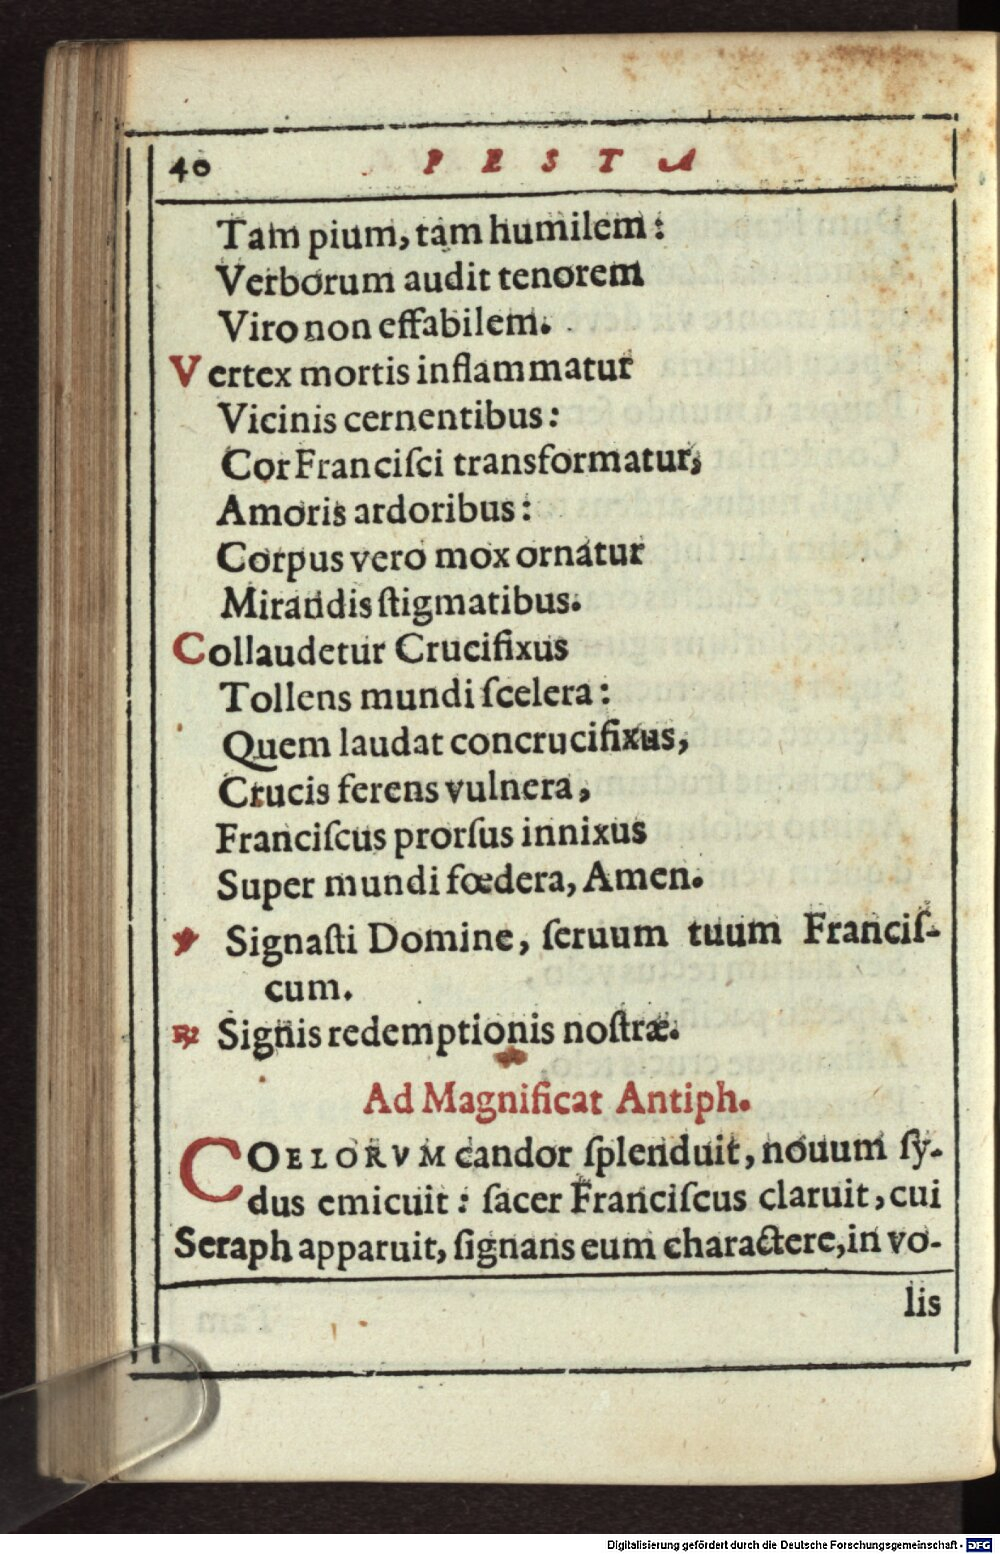 40 FESTA
Tam pium, tam humilem:
Verborum audit tenorem
Viro non effabilem.
Vertex mortis inflammatur
Vicinis cernentibus:
Cor Franciſci transformatur,
Amoris ardoribus:
Corpus vero mox ornatur
Mirandis ſtigmatibus.
Collaudetur Crucifixus
Tollens mundi ſcelera:
Quem laudat concrucifixus,
Crucis ferens vulnera,
Franciſcus prorſus innixus
Super mundi fœdera, Amen.
℣ Signaſti Domine, ſeruum tuum Franciſ-
cum.
℞ Signis redemptionis noſtræ.
Ad Magnificat Antiph.
COELORVM candor ſplenduit, nouum ſy-
dus emicuit: ſacer Franciſcus claruit, cui
Seraph apparuit, ſignans eum charactere, in vo-
lis
Digitalisierung gefördert durch die Deutsche Forschungsgemeinschaft - DFG